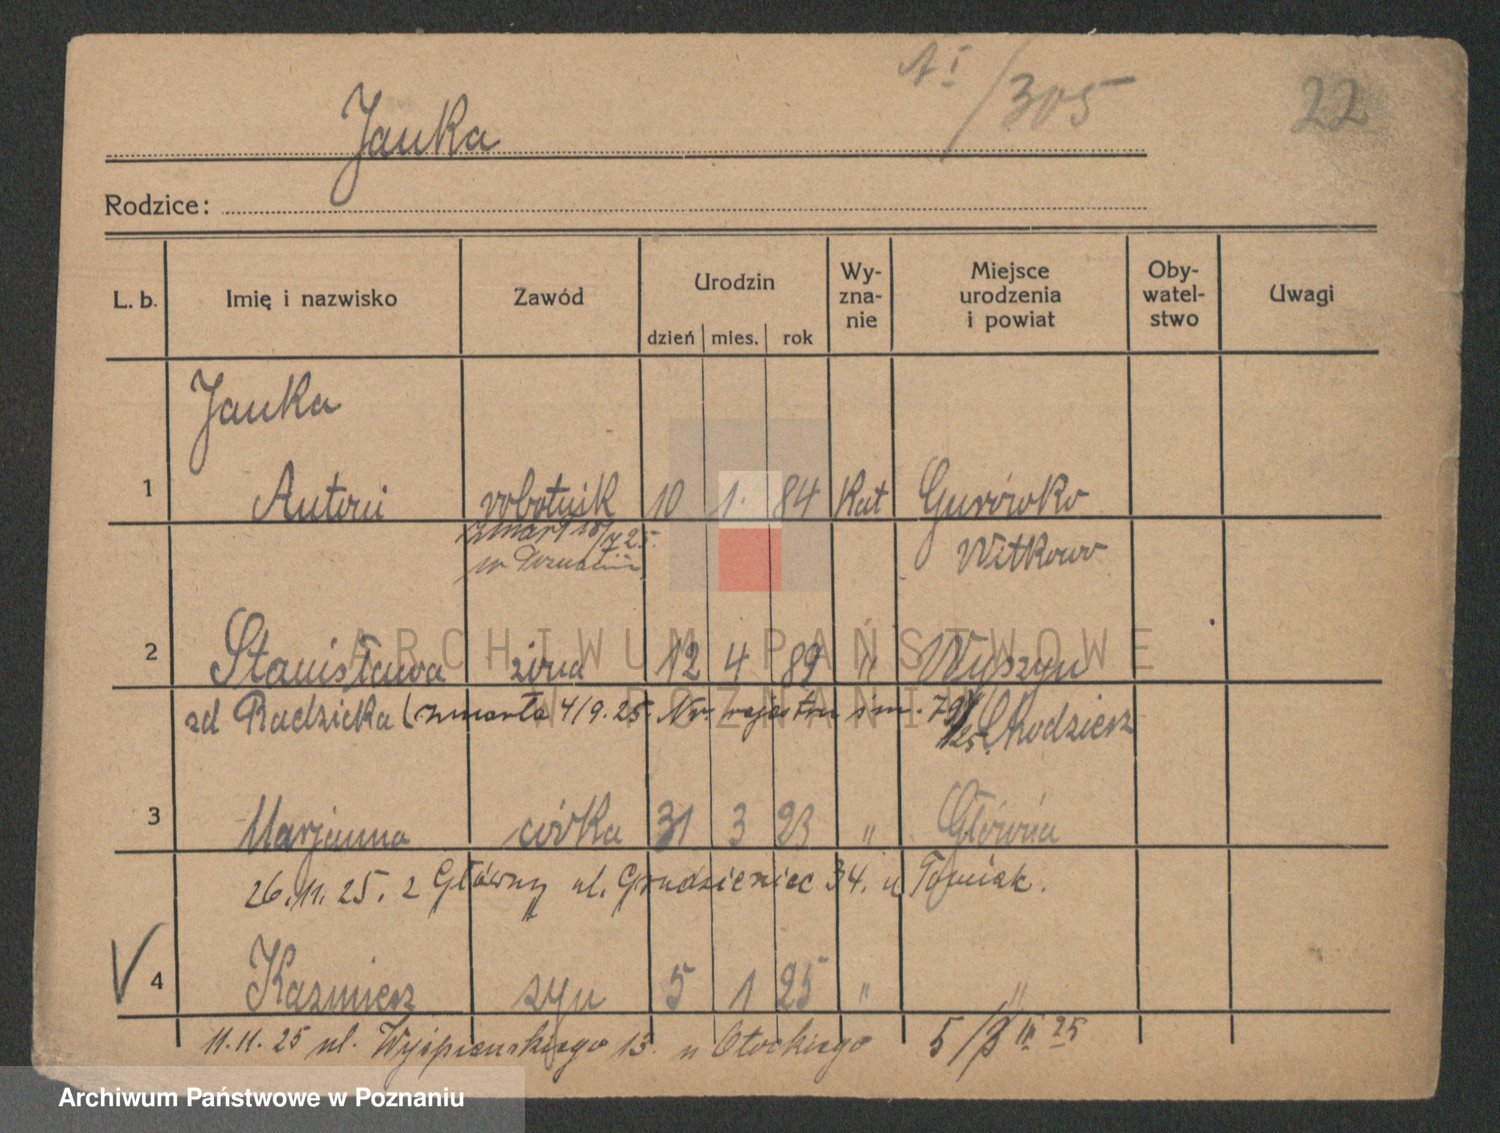 A I /305 22
Janka
Rodzice:
L. b. Imię i nazwisko Zawód Urodzin dzień mies. rok Wy-zna-nie Miejsce urodzenia i powiat Oby-watel-stwo Uwagi
Janka
1 Antoni robotnik 10 1. 84 Kat Gurówko
zmarł 18/7 25. Witkowo
w Poznaniu
2 Stanisława żona 12 4 89 " Wyszyn
zd Radzicka (zmarła 4/9. 25. Nr. rejestru śm. 79/25. Chodzież
3 Marjanna córka 31 3 23 " Główna
26.11.25. z Główny ul. Grudzieniec 34. u Tomiak.
4 Kazmierz syn 5 1 25 " "
11.11.25 ul. Wyspiańskiego 13. u Otockiego 5/3 III 25
ARCHIWUM PAŃSTWOWE
W POZNANIU
Archiwum Państwowe w Poznaniu